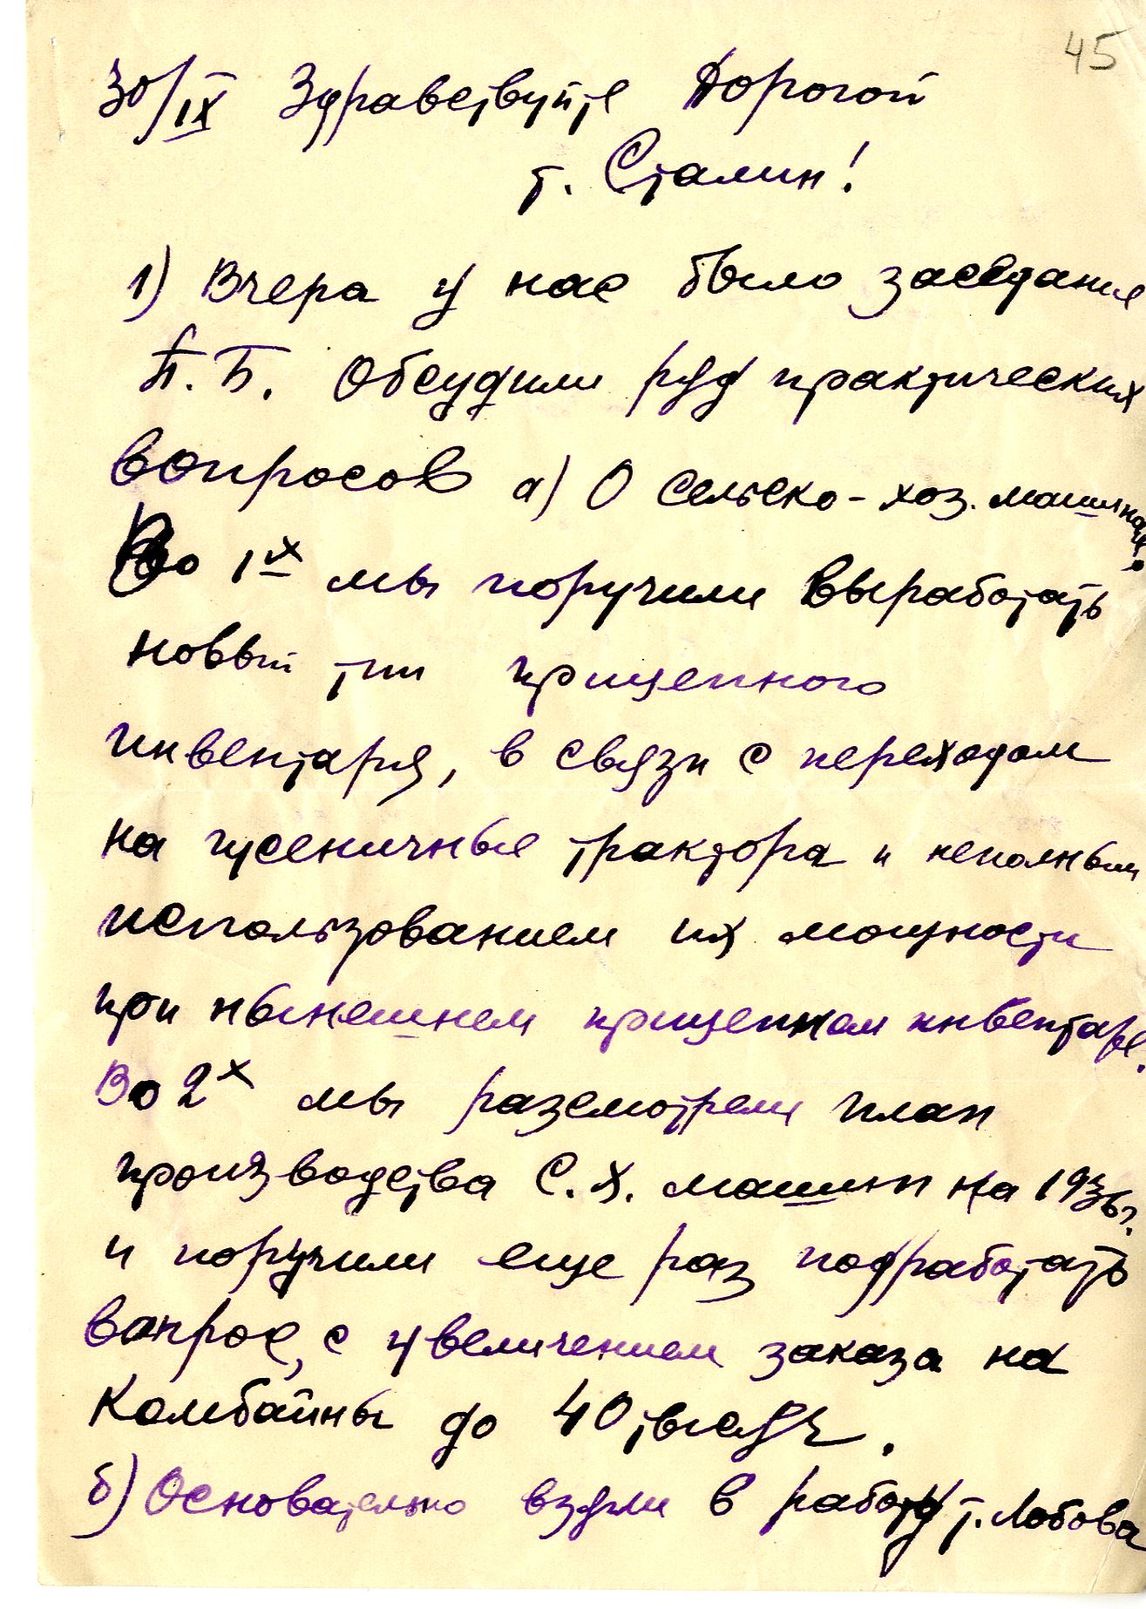 45
30/IX Здравствуйте Дорогой
т. Сталин!
1) Вчера у нас было заседание
П.Б. Обсудили ряд практических
вопросов а) О сельско-хоз. машинах.
Во 1х мы поручили выработать
новый тип прицепного
инвентаря, в связи с переходом
на гусеничные трактора и неполным
использованием их мощности
при нынешнем прицепном инвентаре.
Во 2х мы рассмотрели план
производства С.Х. машин на 1936 г.
и поручили еще раз подработать
вопрос, с увеличением заказа на
Комбайны до 40 тысяч.
б) Основательно взяли в работу т. Лобова